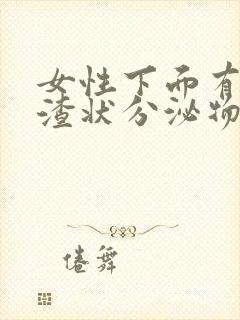 女性下面有
渣状分泌物
倦舞